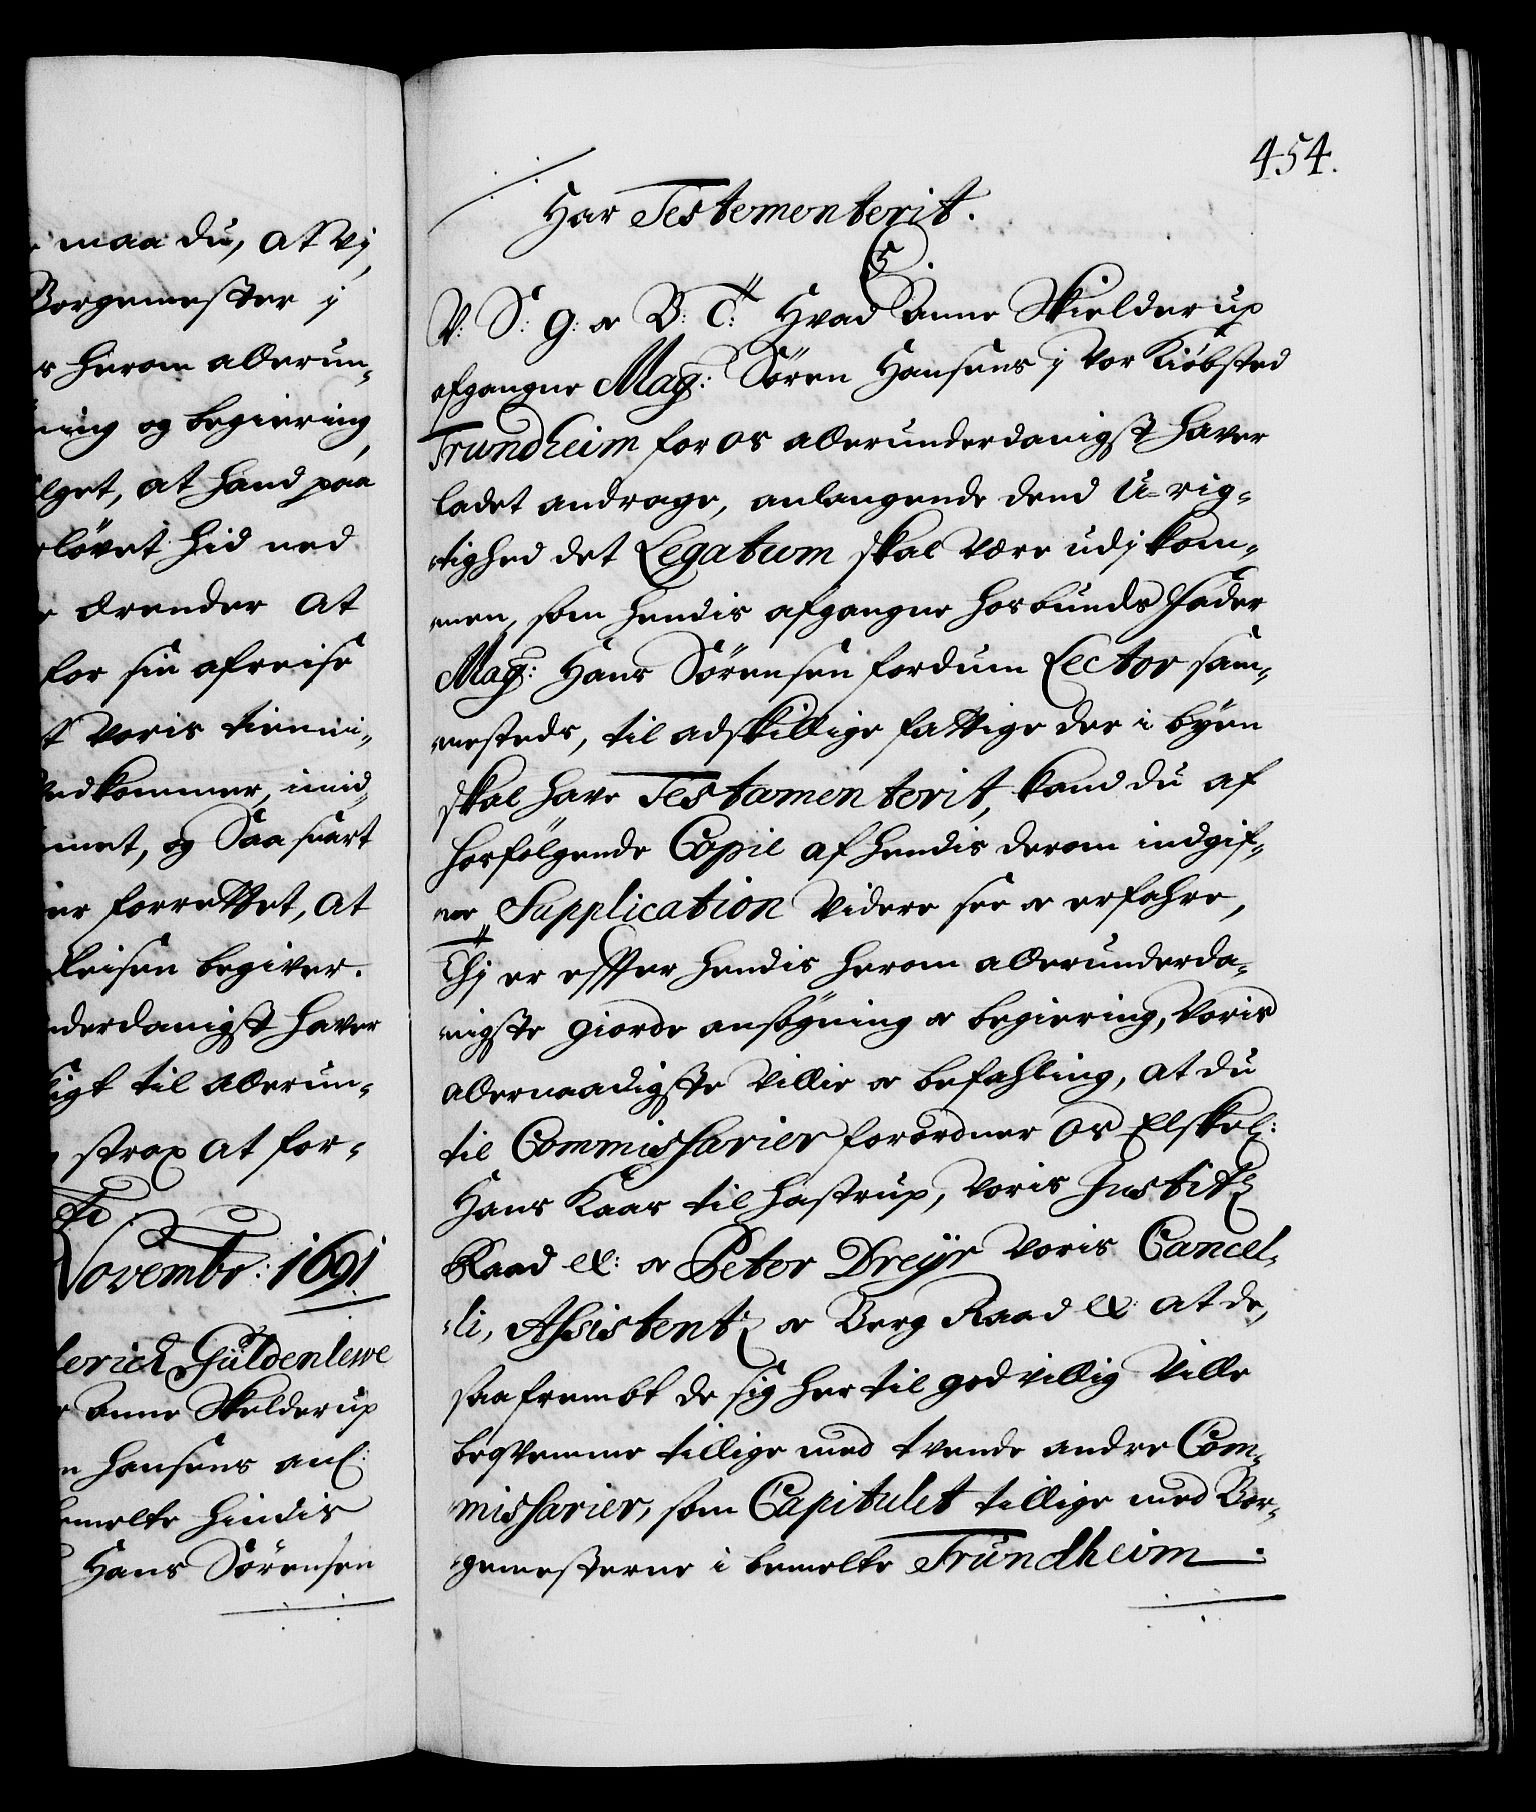 maa du, at Vj
Borgemester j
herom allerun-
ning og begiering
lget, at hand paa
rlövet hid ned
ærender at
for sin afreise
t Voris tienni-
Vedkommer, imid-
met, og Saa snart
er forrettet, at
Reisen begiver.
nderdanigst haver
ligt til allerun-
strax at for-
Novembr: 1691
derich Güldenlewe
Anne Skelderup
n Hansens anl:
bemelte hindis
Hans Sörensen
454.
Har Testementerit.
5.
V: S: G: oc B: T: Hvad Anne Skielderup
afgangne Mag: Sören Hansens j Vor Kiöbsted
Trundheim for os allerunderdanigst haver
ladet andrage, anlangende dend U-rig-
tighed det Legatum skal være udj kom-
men, som hendis afgangne Hosbunds Fader
Mag: Hans Sörensen fordum Lector sam-
mesteds, til adskillige fattige der i byen
skal have Testamenterit, kand du af
hosfölgende Copie af hendis derom indgif-
ne Supplication Videre see oc erfahre,
Thj er effter hendis herom allerunderda-
nigste giorde ansögning oc begiering, Voris
allernaadigste Villie oc befahling, at du
til Commissarier forordner Os Elskel:
Hans Kaas til Hastrup, Voris Justitz
Raad etc: oc Peter Dreyer Voris Cancel-
li, Assistentz oc Berg Raad etc: at de,
saafrembt de sig her til godvillig Ville
beqvemme tillige med tvende andre Com-
missarier, som Capitulet tillige med Bor-
gemesterne i bemelte Trundheim